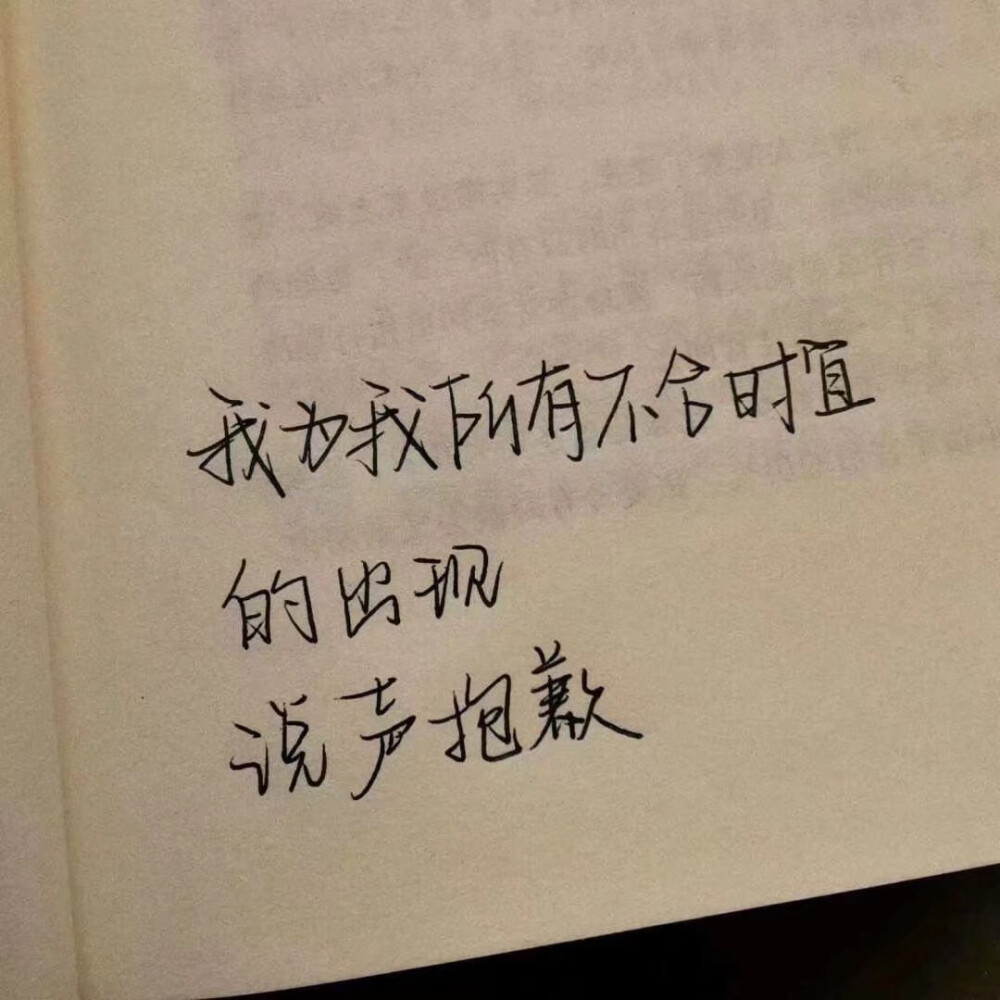 我为我所有不合时宜
的出现
说声抱歉